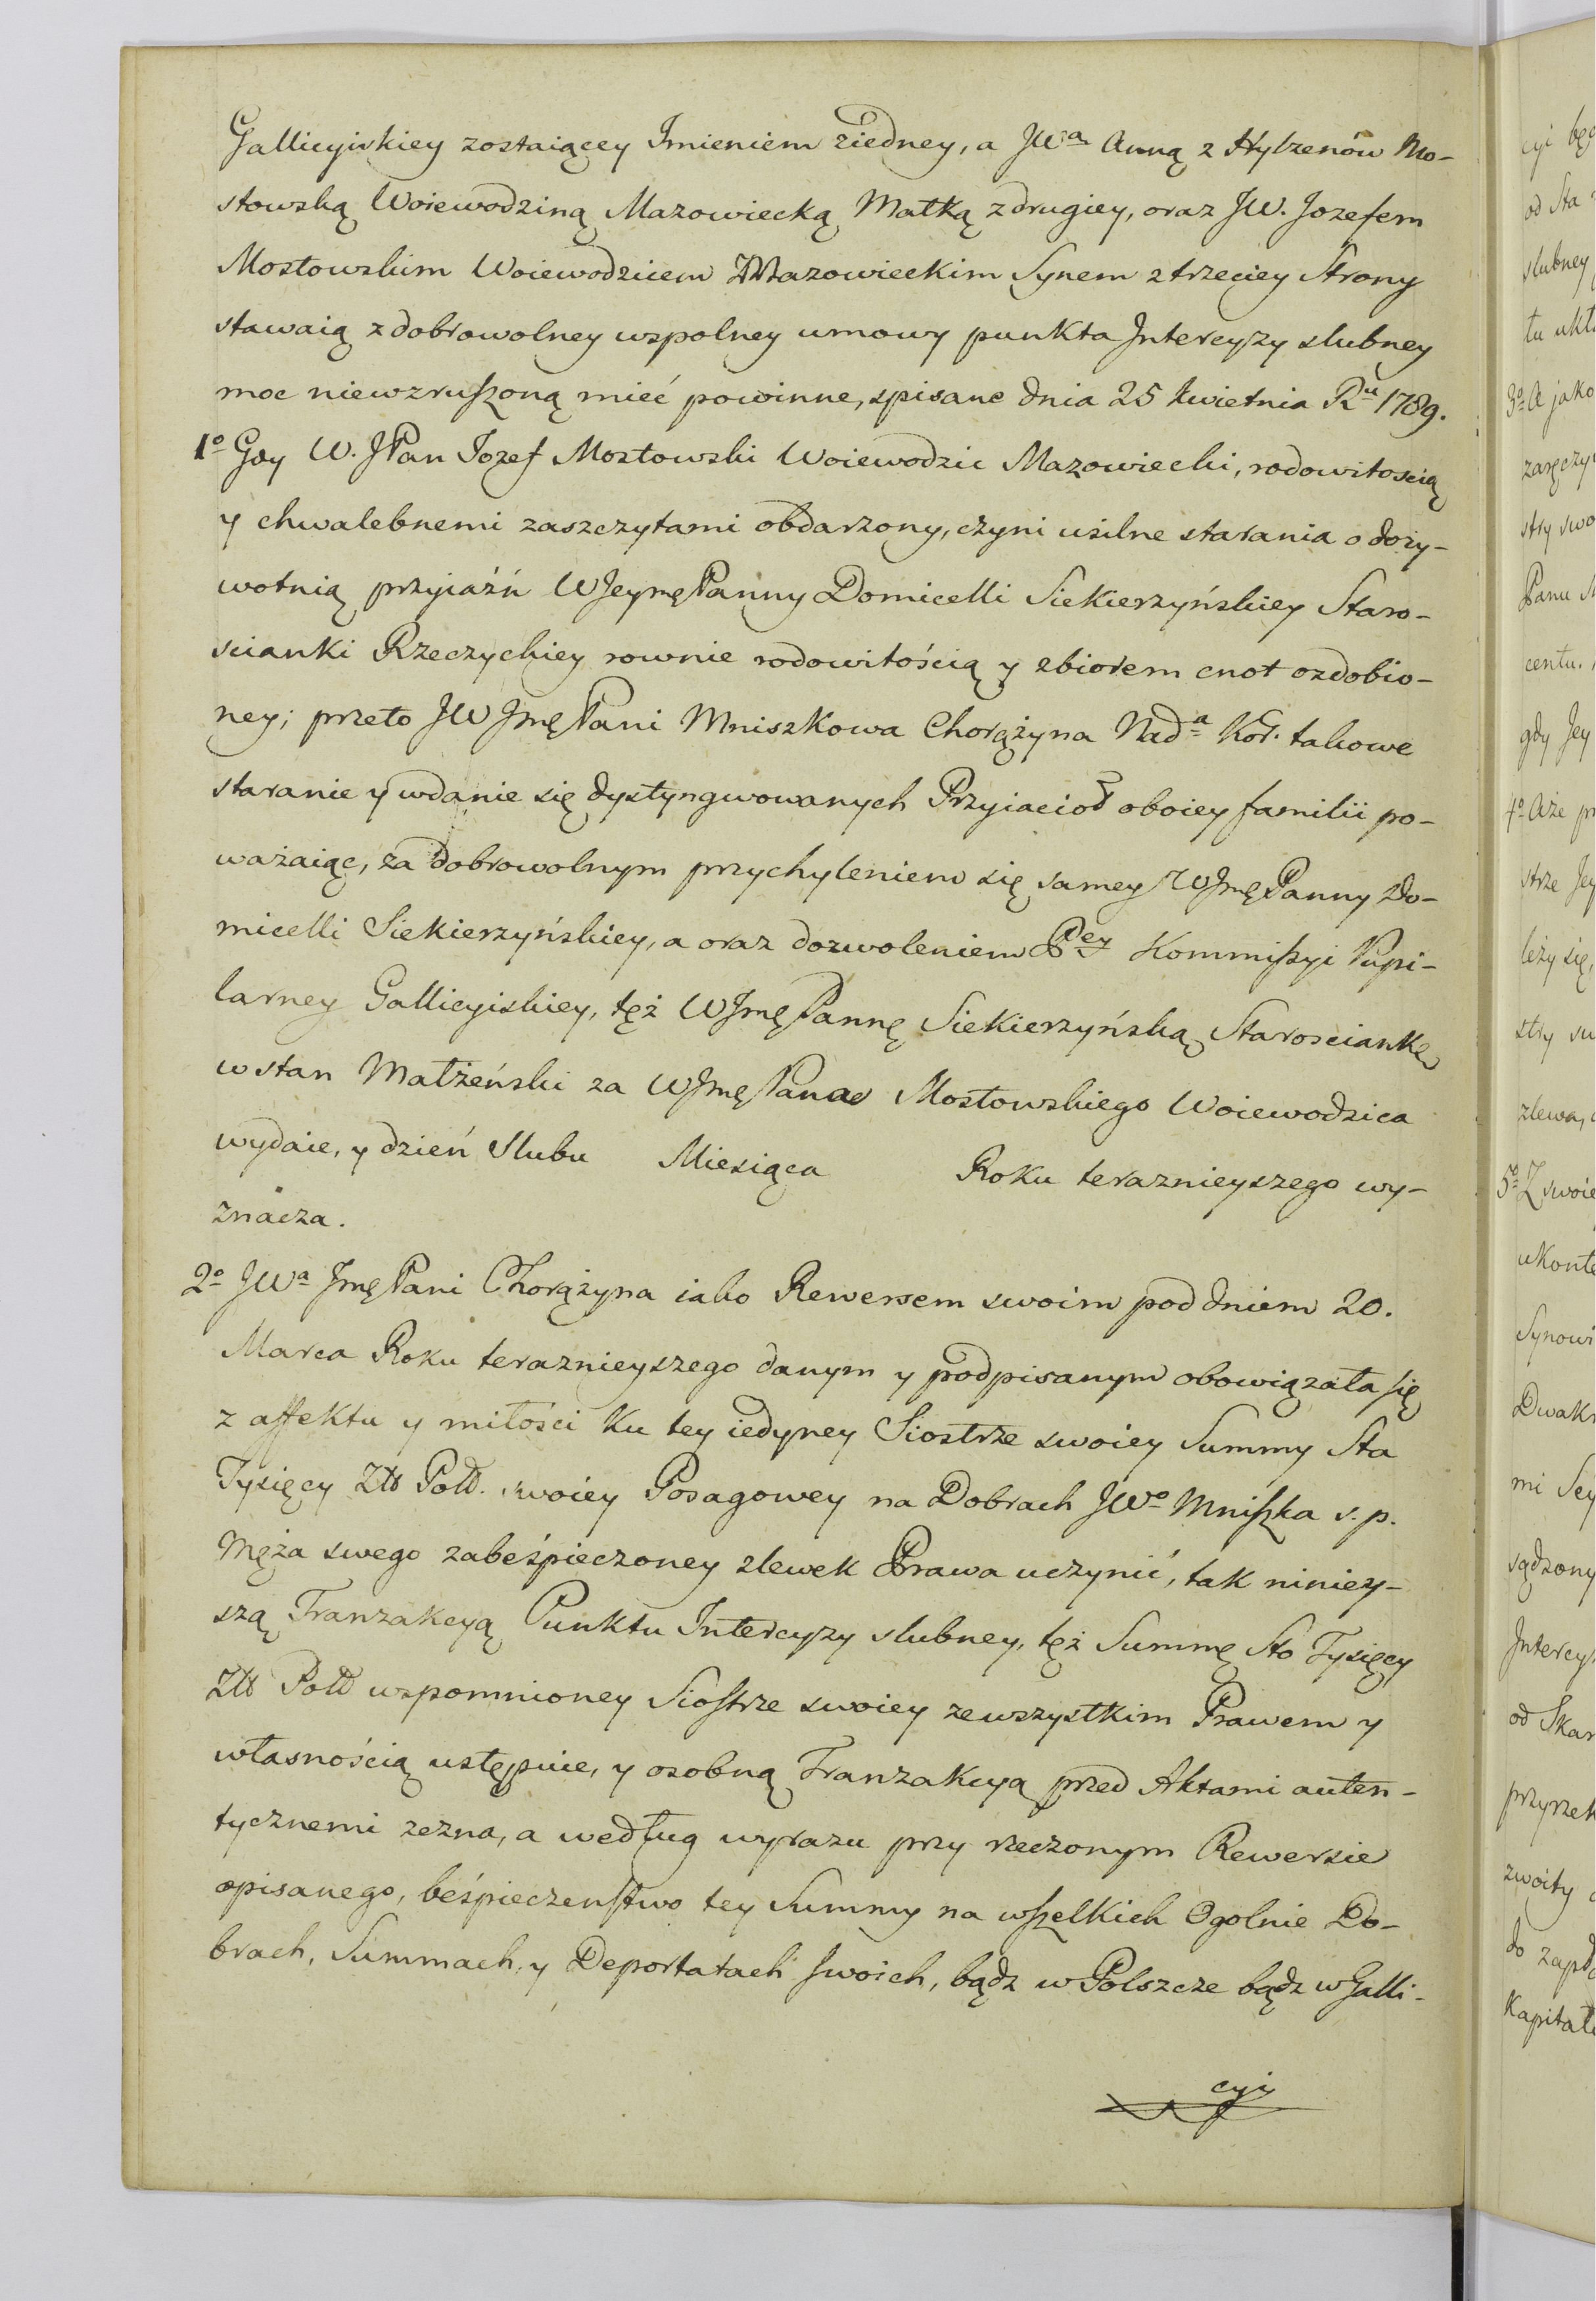 Gallicyiskiey zostaiącey Imieniem ziedney, a JWª Anną z Hylzenów Mo-
stowską Woiewodziną Mazowiecką Matką zdrugiey, oraz JW. Jozefem
Mostowskim Woiewodzicem Mazowieckim Synem ztrzeciey Strony
stawaią z dobrowolney wspolney umowy punkta Intercyzy slubney
moc niewzruszoną mieć powinne, spisane dnia 25 kwietnia Rᵘ 1789.
1º Gdy W. JPan Jozef Mostowski Woiewodzic Mazowiecki, rodowitoscią
y chwalebnemi zaszczytami obdarzony, czyni usilne starania o doży-
wotnią przyiaźń WJeymę Panny Domicelli Siekierzyńskiey Staro-
scianki Rzeczyckiey rownie rodowitością y zbiorem cnot ozdobio-
ney; przeto JW Jmę Pani Mniszkowa Chorążyna Nadª Kor. takowe
staranie y wdanie się dystyngwowanych Przyiacioł oboiey familii po-
ważaiąc, za dobrowolnym przychyleniem się samey WJmę Panny Do-
micelli Siekierzyńskiey, a oraz dozwoleniem Pey Kommissyi Pupi-
larney Gallicyiskiey, tęż WJmę Pannę Siekierzyńską Starosciankę
w stan Małżeński za WJmę Pana Mostowskiego Woiewodzica
wydaie, y dzień Slubu Miesiąca Roku teraznieyszego wy-
znacza.
2º JWª Jmę Pani Chorążyna iako Rewersem swoim pod dniem 20.
Marca Roku teraznieyszego danym y podpisanym obowiązała się
z affektu y miłości ku tey iedyney Siostrze swoiey Summy Sta
Tysięcy Złł Poll. swoiey Posagowey na Dobrach JWº Mniszka s. p.
Męża swego zabeśpieczoney zlewek Prawa uczynić, tak niniey-
szą Tranzakcyą Punktu Intercyzy slubney, tęż Summę Sto Tysięcy
Złł Poll wspomnioney Siostrze swoiey ze wszystkim Prawem y
własnością ustępuie, y osobną Tranzakcyą przed Aktami auten-
tycznemi zezna, a według wyrazu przy rzeczonym Rewersie
opisanego, beśpieczenstwo tey Summy na wszelkich Ogolnie Do-
brach, Summach, y Deportatach swoich, bądz w Polszcze bądz w Galli-
cyi